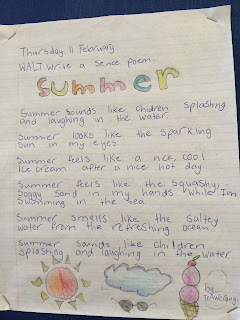 Thursday 11 February
WALT Write a sence poem.
Summer
Summer sounds like chidren splashing
and laughing in the water.
Summer looks like the sparkling
sun in my eyes.
Summer feels like a nice, cool
Ice cream after a nice hot day.
Summer feels like the squashy,
soggy sand in my hands while I'm
swimming in the sea.
Summer smells like the saltey
water from the refreshing ocean.
Summer sounds like children
splashing and laughing in the water
by